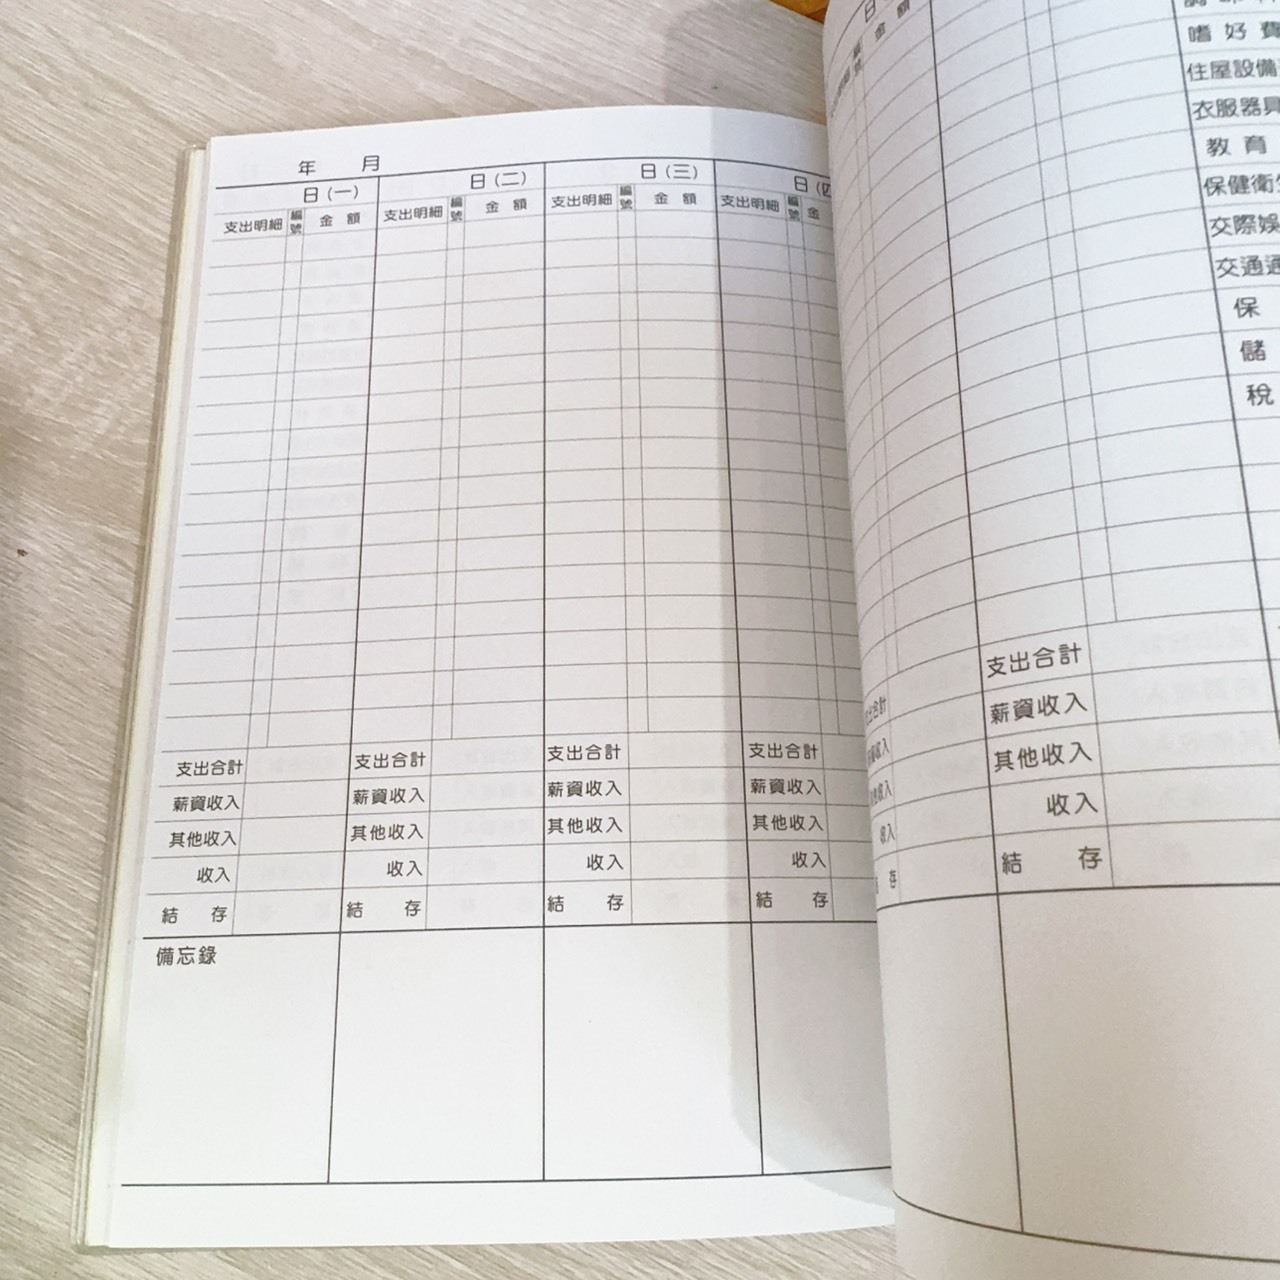 年 月
日(一) 日(二) 日(三) 日(四
支出明細 編號 金額 支出明細 編號 金額 支出明細 編號 金額 支出明細 編號 金
支出合計 支出合計 支出合計 支出合計
薪資收入 薪資收入 薪資收入 薪資收入
其他收入 其他收入 其他收入 其他收入
收入 收入 收入 收入
結存 結存 結存 結存
備忘錄
日 金額
編號
嗜好費
住屋設備
衣服器具
教育
保健衛生
交際娛
交通通
保
儲
稅
支出合計
薪資收入
其他收入
收入
結存
出合計
收入
收入
收入
存